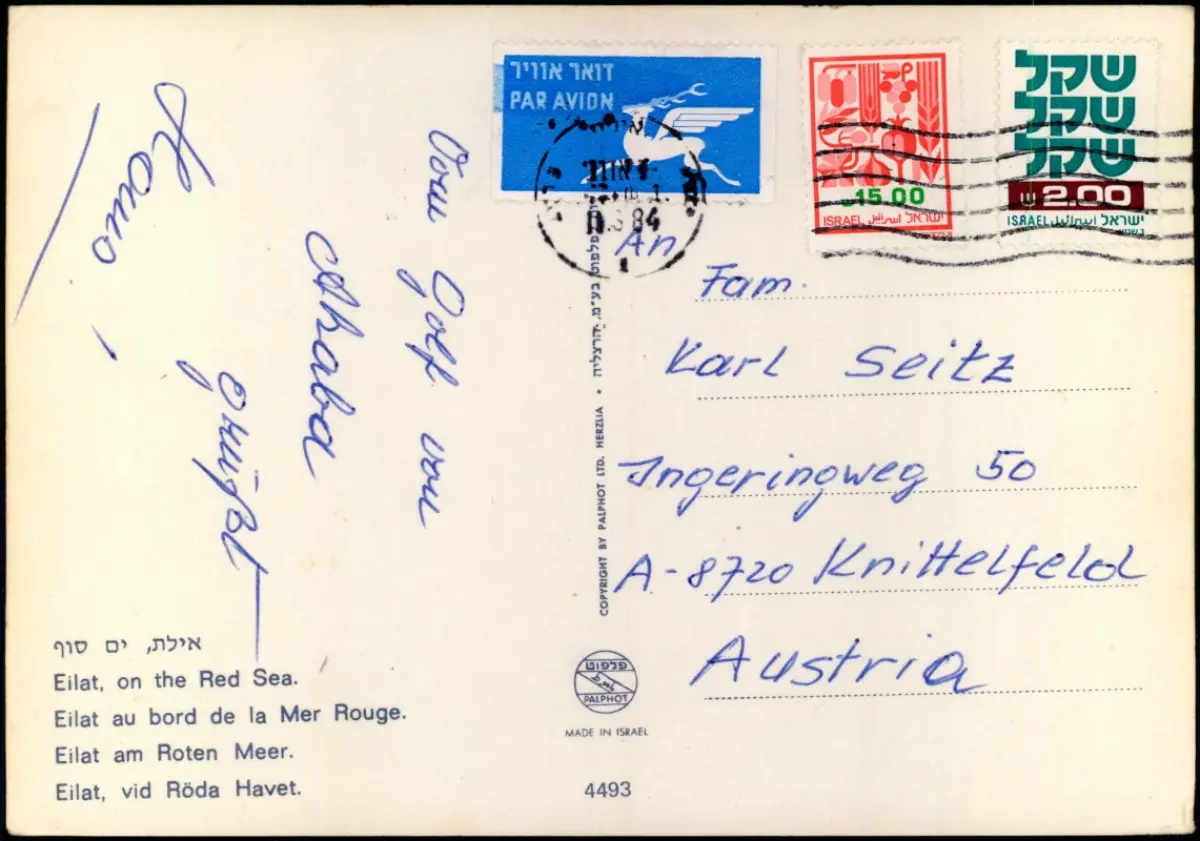 דואר אוויר
PAR AVION
15.00
ISRAEL اسرائيل ישראל
שקל
שקל
שקל
2.00
ISRAEL اسرائيل ישראל
84
Vom Golf von
Akaba
grüßt
An
Fam.
Karl Seitz
Ingeringweg 50
A-8720 Knittelfeld
Austria
COPYRIGHT BY PALPHOT LTD. HERZLIA • פלפוט בע"מ, הרצליה
אילת, ים סוף
Eilat, on the Red Sea.
Eilat au bord de la Mer Rouge.
Eilat am Roten Meer.
Eilat, vid Röda Havet.
פלפוט
PALPHOT
MADE IN ISRAEL
4493